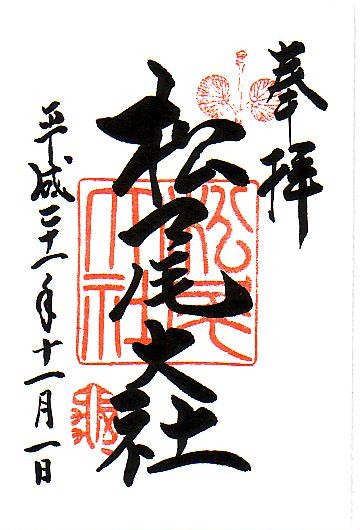 奉拝
松尾大社
松尾大社
平成二十一年十一月一日